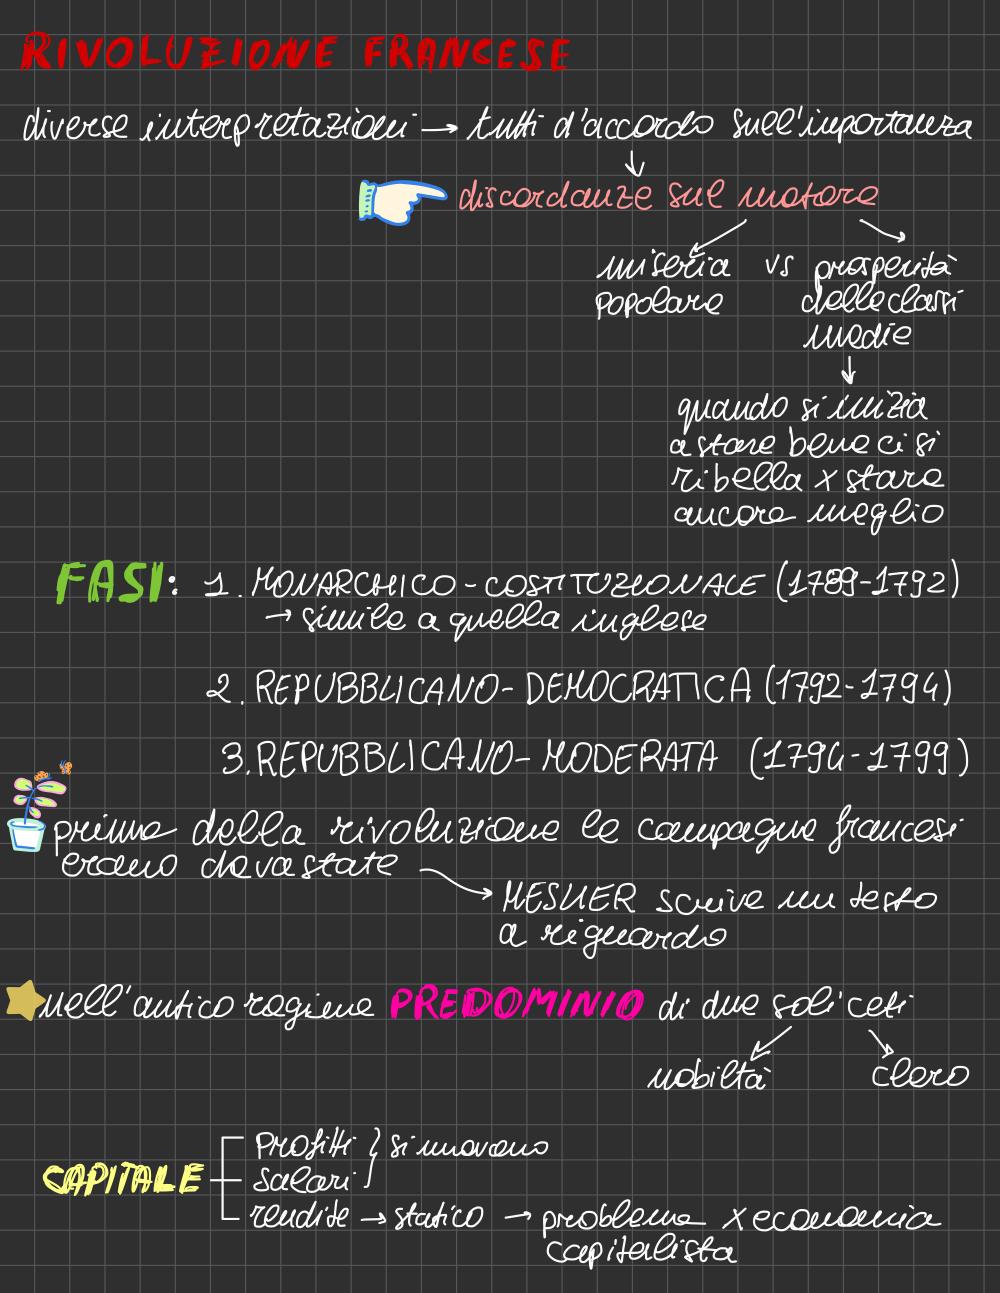 RIVOLUZIONE FRANCESE
diverse interpretazioni → tutti d'accordo sull'importanza
↓
discordanze sul motore
miseria vs prosperità
popolare delle classi
medie
↓
quando si inizia
a stare bene ci si
ribella x stare
ancora meglio
FASI: 1. MONARCHICO-COSTITUZIONALE (1789-1792)
→ simile a quella inglese
2. REPUBBLICANO-DEMOCRATICA (1792-1794)
3. REPUBBLICANO-MODERATA (1794-1799)
prima della rivoluzione le campagne francesi
erano devastate
MESLIER scrive un testo
a riguardo
nell'antico regime PREDOMINIO di due soli ceti
nobiltà clero
Profitti } si muovono
CAPITALE salari
rendite → statico → problema x economia
capitalista